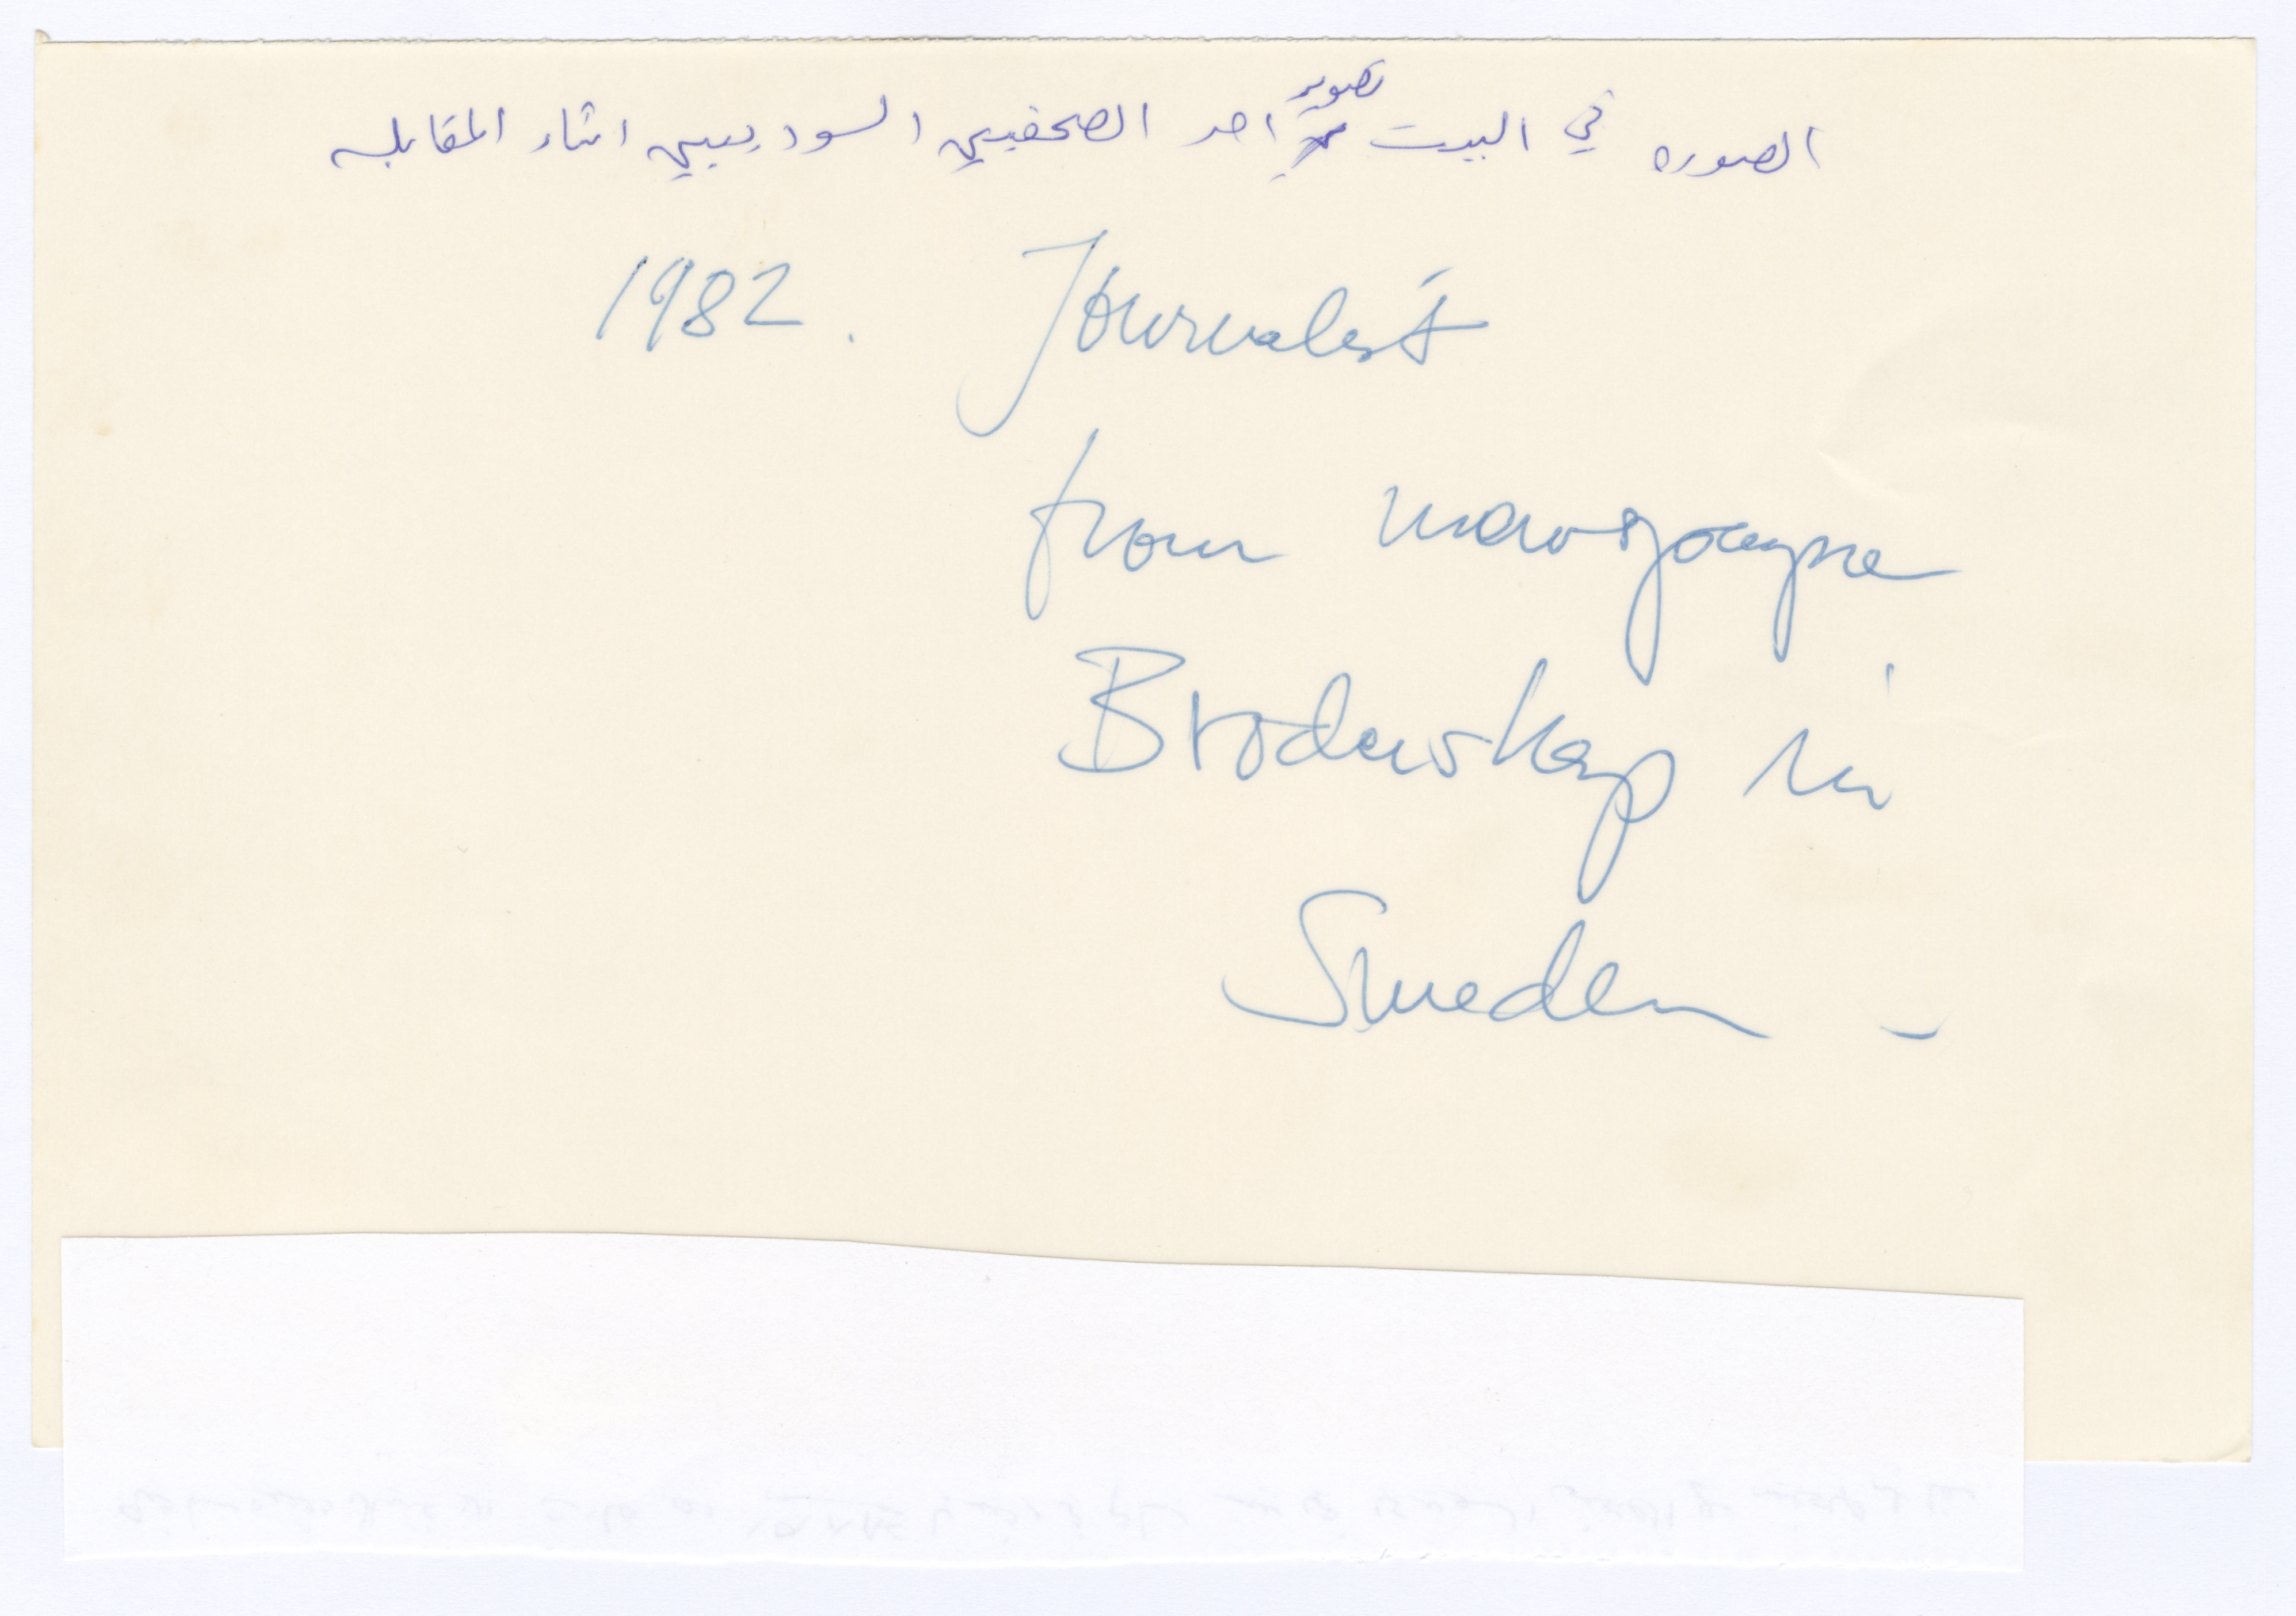 الصوره في البيت تصوير احد الصحفيين السوديين اثناء المقابله
1982. Journalist
from
Broderskap in
Sweden -